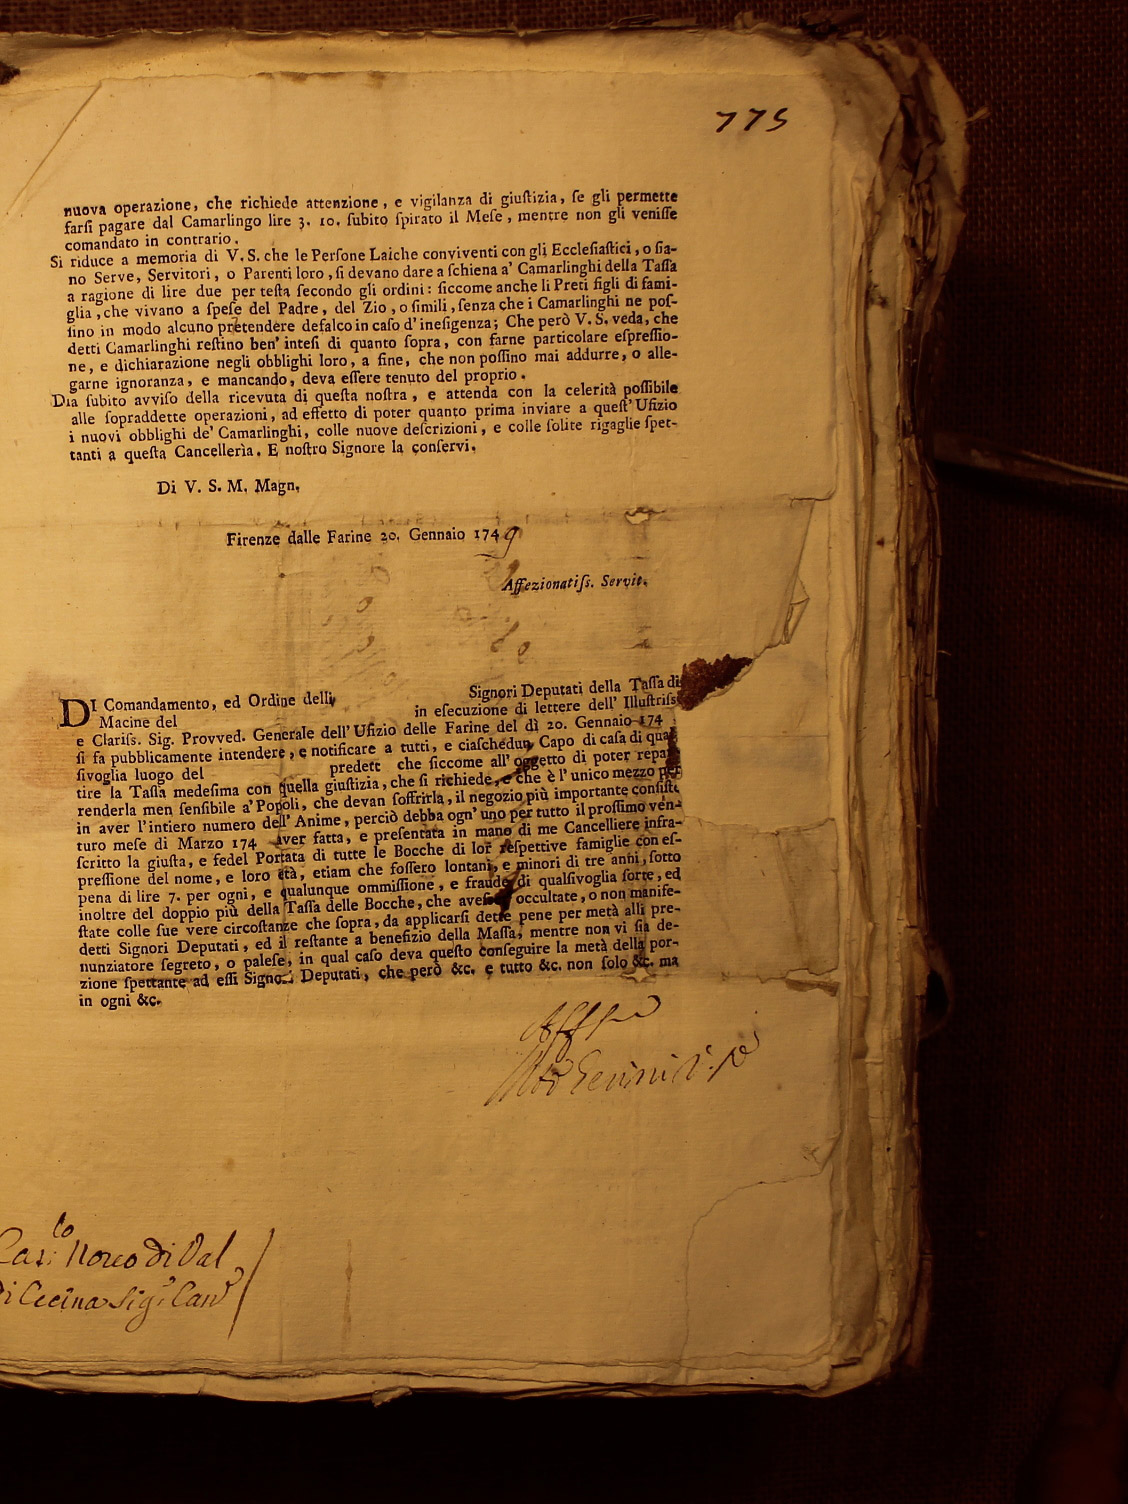 775
nuova operazione, che richiede attenzione, e vigilanza di giuſtizia, ſe gli permette
farſi pagare dal Camarlingo lire 3. 10. ſubito ſpirato il Meſe, mentre non gli veniſſe
comandato in contrario.
Si riduce a memoria di V. S. che le Perſone Laiche conviventi con gli Eccleſiaſtici, o ſia-
no Serve, Servitori, o Parenti loro, ſi devano dare a ſchiena a' Camarlinghi della Taſſa
a ragione di lire due per teſta ſecondo gli ordini: ſiccome anche li Preti figli di fami-
glia, che vivano a ſpeſe del Padre, del Zio, o ſimili, ſenza che i Camarlinghi ne poſ-
ſino in modo alcuno pretendere defalco in caſo d' ineſigenza; Che però V. S. veda, che
detti Camarlinghi reſtino ben' inteſi di quanto ſopra, con farne particolare eſpreſſio-
ne, e dichiarazione negli obblighi loro, a fine, che non poſſino mai addurre, o alle-
garne ignoranza, e mancando, deva eſſere tenuto del proprio.
Dia ſubito avviſo della ricevuta di queſta noſtra, e attenda con la celerità poſſibile
alle ſopraddette operazioni, ad effetto di poter quanto prima inviare a queſt' Ufizio
i nuovi obblighi de' Camarlinghi, colle nuove deſcrizioni, e colle ſolite rigaglie ſpet-
tanti a queſta Cancellerìa. E noſtro Signore la conſervi.
Di V. S. M. Magn.
Firenze dalle Farine 20. Gennaio 1749
Affezionatiſs. Servit.
DI Comandamento, ed Ordine delli Signori Deputati della Taſſa di
Macine del in eſecuzione di lettere dell' Illuſtriſs
e Clariſs. Sig. Provved. Generale dell' Ufizio delle Farine del dì 20. Gennaio 174
ſi fa pubblicamente intendere, e notificare a tutti, e ciaſchedun Capo di caſa di qual
ſivoglia luogo del predett che ſiccome all' oggetto di poter repar
tire la Taſſa medeſima con quella giuſtizia, che ſi richiede, e che è l' unico mezzo per
renderla men ſenſibile a' Popoli, che devan ſoffrirla, il negozio più importante conſiſte
in aver l' intiero numero dell' Anime, perciò debba ogn' uno per tutto il proſſimo ven-
turo meſe di Marzo 174 aver fatta, e preſentata in mano di me Cancelliere infra-
ſcritto la giuſta, e fedel Portata di tutte le Bocche di lor reſpettive famiglie con eſ-
preſſione del nome, e loro età, etiam che foſſero lontani, e minori di tre anni, ſotto
pena di lire 7. per ogni, e qualunque ommiſſione, e fraude di qualſivoglia ſorte, ed
inoltre del doppio più della Taſſa delle Bocche, che aveſſ occultate, o non manife-
ſtate colle ſue vere circoſtanze che ſopra, da applicarſi dette pene per metà alli pre-
detti Signori Deputati, ed il reſtante a benefizio della Maſſa, mentre non vi ſia de-
nunziatore ſegreto, o paleſe, in qual caſo deva queſto conſeguire la metà della por-
zione ſpettante ad eſſi Signori Deputati, che però &c. e tutto &c. non ſolo &c. ma
in ogni &c.
di Val
di Cecina Sig.